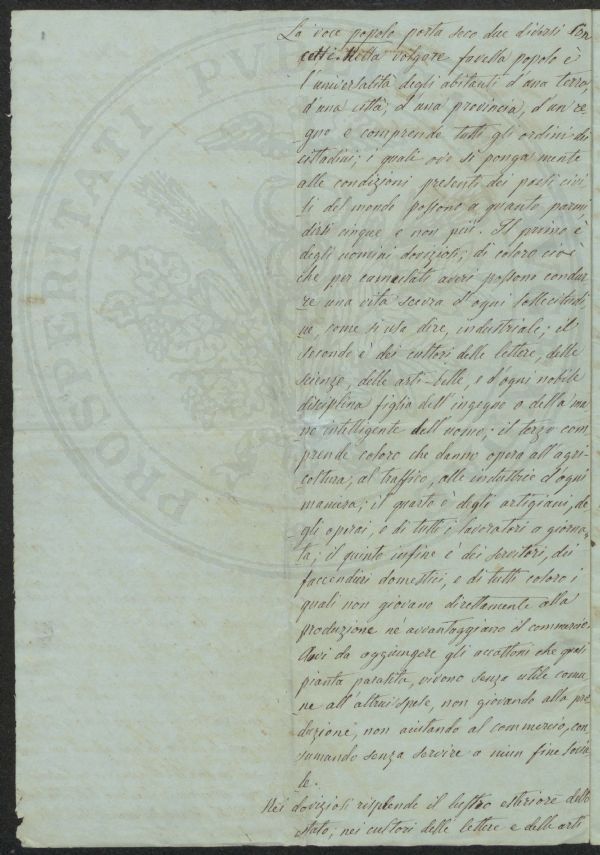 La voce popolo porta seco due diversi Con
cetti. Nella volgare favella popolo è
l'universalità degli abitanti d'una terra,
d'una città, d'una provincia, d'un re
gno e comprende tutti gli ordini di
cittadini; i quali ove si ponga mente
alle condizioni presenti dei paesi civi
li del mondo possono a quanto parmi
dirsi cinque e non più. Il primo è
degli uomini dovizioli; di coloro cioè
che per cumulati averi possono condur
re una vita scevra d'ogni sollecitudi
ne, come si usa dire, industriale; il
secondo è dei cultori delle lettere, delle
scienze, delle arti-belle, e d'ogni nobile
disciplina figlia dell'ingegno o della ma
no intelligente dell'uomo; il terzo com
prende coloro che danno opera all'agri
coltura, al traffico, alle industrie d'ogni
maniera; il quarto è degli artigiani, de
gli operai, e di tutti i lavoratori a giorna
ta; il quinto infine è dei servitori, dei
faccendieri domestici, e di tutti coloro i
quali non giovano direttamente alla
produzione nè avvantaggiano il commercio.
Avvi da aggiungere gli accattoni che quasi
pianta parasita, vivono senza utile comu
ne all'altrui spese, non giovando alla pro
duzione, non aiutando al commercio, con
sumando senza servire a niun fine socia
le.
Nei dovizioli risplende il lustro esteriore dello
stato; nei cultori delle lettere e delle arti
PROSPERITATI PVB